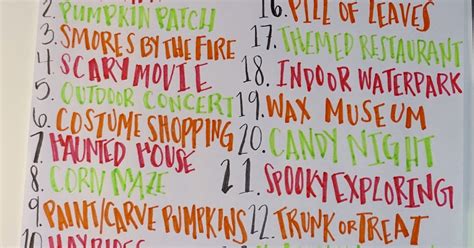 2. PUMPKIN PATCH
3. SMORES BY THE FIRE
4. SCARY MOVIE
5. OUTDOOR CONCERT
6. COSTUME SHOPPING
7. HAUNTED HOUSE
8. CORN MAZE
9. PAINT/CARVE PUMPKINS
10. HAYRIDES
16. PILE OF LEAVES
17. THEMED RESTAURANT
18. INDOOR WATERPARK
19. WAX MUSEUM
20. CANDY NIGHT
21. SPOOKY EXPLORING
22. TRUNK OR TREAT